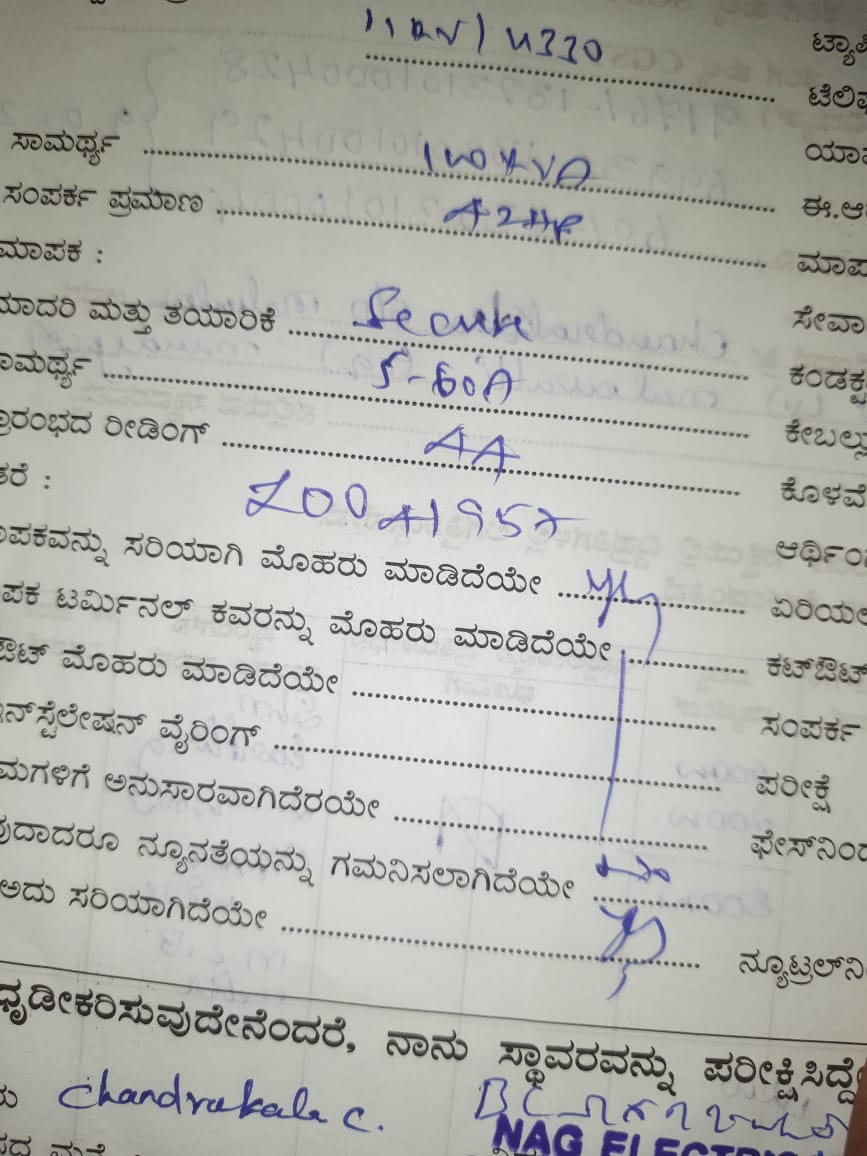 11KV/433O ಟ್ಯಾಪಿ
ಟೆಲಿಫ
ಸಾಮರ್ಥ್ಯ 100KVA ಯಾವ
ಸಂಪರ್ಕ ಪ್ರಮಾಣ ಈ.ಆರ
ಮಾಪಕ : ಮಾಪ
ಮಾದರಿ ಮತ್ತು ತಯಾರಿಕೆ Secure ಸೇವಾ
ಸಾಮರ್ಥ್ಯ 5-60A ಕಂಡಕ್ಟ
ಪ್ರಾರಂಭದ ರೀಡಿಂಗ್ AA ಕೇಬಲ್ಲು
ತರೆ : ಕೊಳವೆ
ಆರ್ಥಿಂಗ
ಮಾಪಕವನ್ನು ಸರಿಯಾಗಿ ಮೊಹರು ಮಾಡಿದೆಯೇ ಏರಿಯಲ
ಮಾಪಕ ಟರ್ಮಿನಲ್ ಕವರನ್ನು ಮೊಹರು ಮಾಡಿದೆಯೇ ಕಟ್‌ಔಟ್
ಔಟ್ ಮೊಹರು ಮಾಡಿದೆಯೇ ಸಂಪರ್ಕ
ಇನ್‌ಸ್ಟೆಲೇಷನ್ ವೈರಿಂಗ್ ಪರೀಕ್ಷೆ
ಮಗಳಿಗೆ ಅನುಸಾರವಾಗಿದೆರಯೇ ಫೇಸ್‌ನಿಂದ
ವುದಾದರೂ ನ್ಯೂನತೆಯನ್ನು ಗಮನಿಸಲಾಗಿದೆಯೇ
ಅದು ಸರಿಯಾಗಿದೆಯೇ ನ್ಯೂಟ್ರಲ್‌ನಿ
ಧೃಡೀಕರಿಸುವುದೇನೆಂದರೆ, ನಾನು ಸ್ಥಾವರವನ್ನು ಪರೀಕ್ಷಿಸಿದ್ದೇ
Chandrakala C.
NAG ELECTRIC